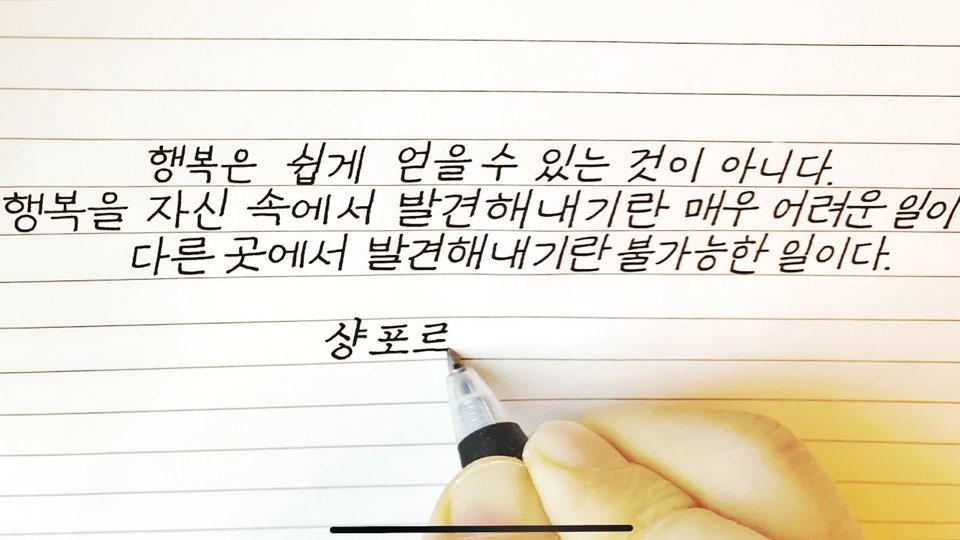 행복은 쉽게 얻을 수 있는 것이 아니다.
행복을 자신 속에서 발견해내기란 매우 어려운 일이
다른 곳에서 발견해내기란 불가능한 일이다.
샹포르